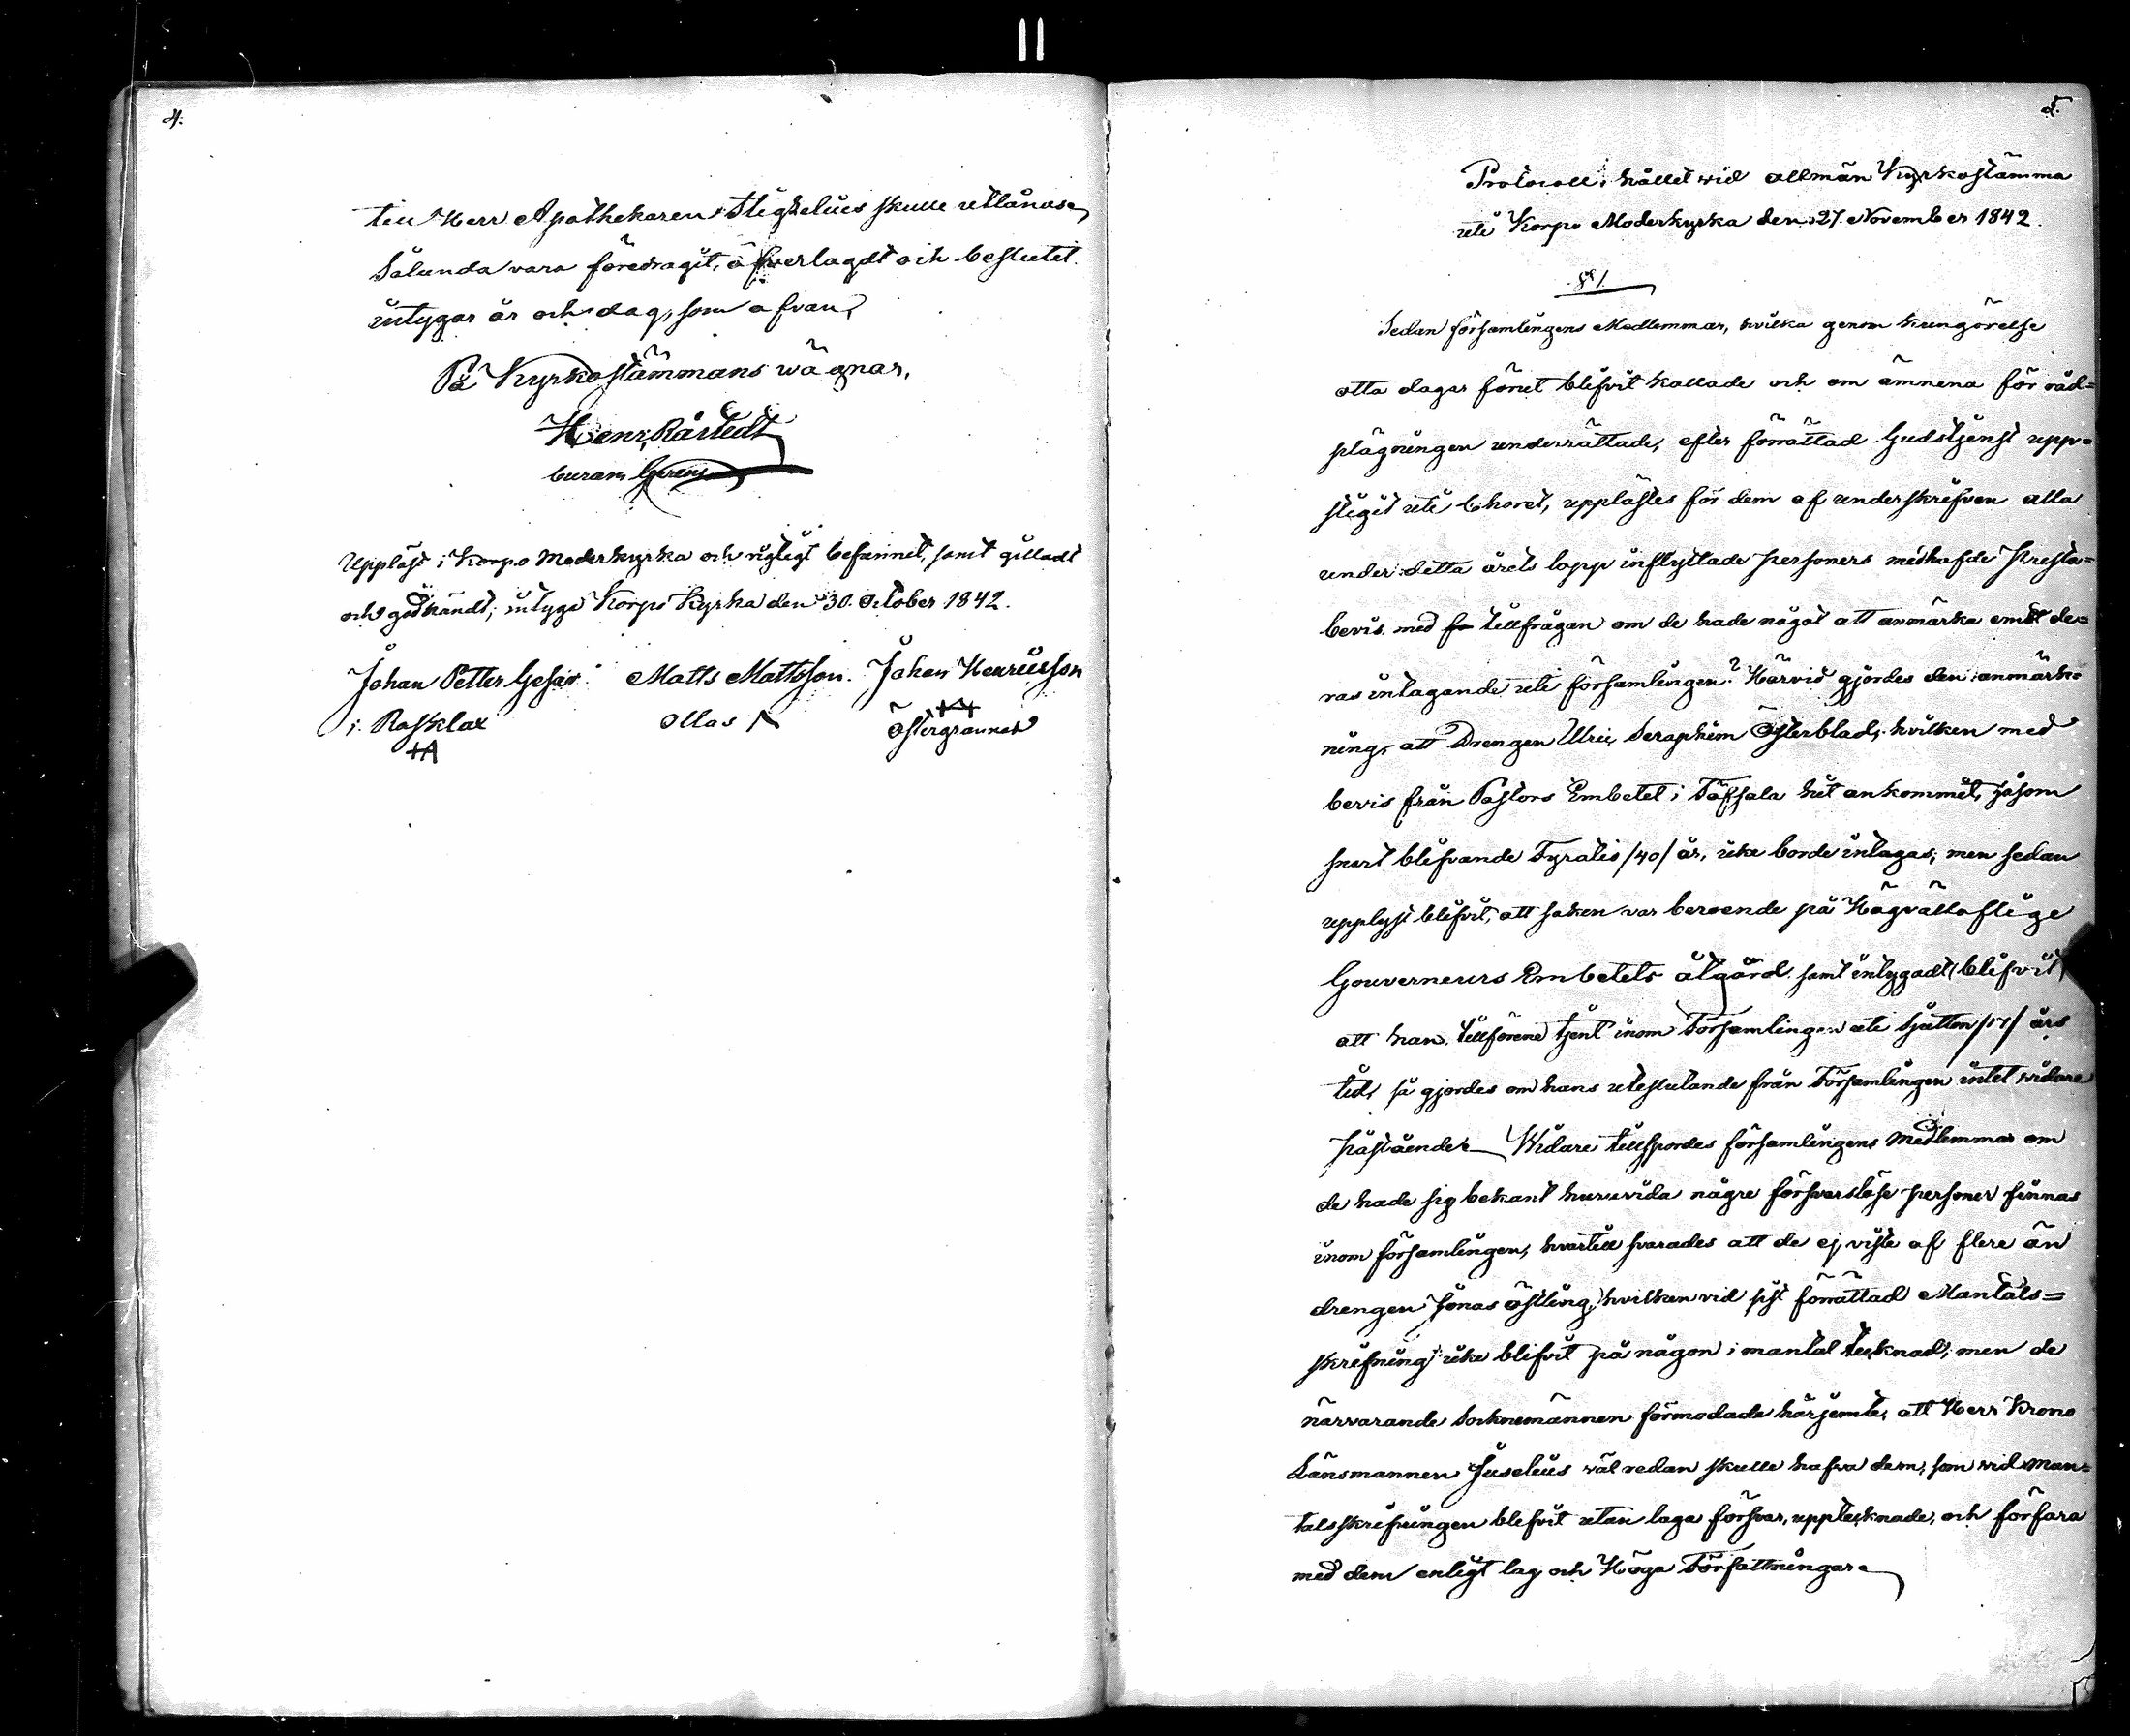 4.
till Herr Apothekaren Stigzelius skulle utlånas.
Sålunda vara föredragit, öfverlagdt och beslutit
intygar år och dag, som ofvan,
På Kyrkostämmans wägnar,
Henr. Rårtedt
curam Gerens
Uppläst i Korpo Moderkyrka och rigtigt befunnet, samt gilladt
och godkändt, intyga Korpo Kyrka den 30. October 1842.
Johan Petter Matts Mattsson. Johan Henricsson
i Rosklax Ollas Östergrannas
5.
Protocoll, hållet wid allmän Kyrkostämma
uti Korpo Moderkyrka den 27. November 1842.
§ 1.
Sedan församlingens Medlemmar, hvilka genom kungörelse
otta dagar förut blifvit kallade och om ämnena för råd=
plägningen underrättade, efter förrättad Gudstjenst upp=
stigit uti Choret, upplästes för dem af underskrifven alla
under detta årets lopp inflyttade personers medhafde Presta=
bevis med tillfrågan om de hade något att anmärka emot de=
ras intagande uti församlingen? Härvid gjordes den anmärk=
ning, att Drengen Ulric Seraphim Österblad, hvilken med
bevis från Pastors Embetet i Töfsala hit ankommit, såsom
snart blifvande Fyratio /40/ år, icke borde intagas; men sedan
upplyst blifvit, att saken var beroende på Högvälloflige
Gouverneurs Embetets åtgärd samt intygadt blifvit,
att han tillförene tjent inom Församlingen uti Sjutton /17/ års
tid, så gjordes om hans uteslutande från Församlingen intet widare
påstående. Widare tillspordes församlingens Medlemmar om
de hade sig bekant huruvida någre försvarslöse personer finnas
inom församlingen, hvartill svarades att de ej viste af flere än
drengen Jonas Östling, hvilken vid sist förrättad Mantals=
skrifning icke blifvit på någon i mantal tecknad; men de
närvarande Socknemännen förmodade härjemte, att Herr Krono
Länsmannen Juselius wäl redan skulle hafva dem, som wid Man=
talsskrifningen blifvit utan laga försvar, upptecknade, och förfara
med dem enligt lag och Höga Författningar.